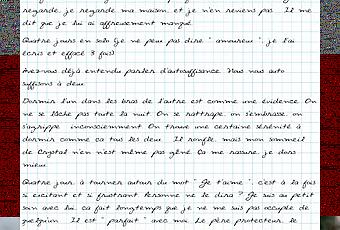 regarde, je regarde ma maison, et je n'en reviens pas. Il me
dit que je lui ai affreusement manqué.
Quatre jours en solo (je ne peux pas dire " amoureux ", je l'ai
écris et effacé 3 fois).
Avez-vous déjà entendu parler d'autosuffisance. Nous nous auto
suffisons à deux.
Dormir l'un dans les bras de l'autre est comme une évidence. On
ne se lâche pas toute la nuit. On se rattrape, on s'embrasse, on
s'agrippe inconsciemment. On trouve une certaine sérénité à
dormir comme ca tous les deux. Il ronfle, mais mon sommeil
de Crystal n'en n'est même pas gêné. Ca me rassure, je dors
mieux.
Quatre jours à tourner autour du mot " Je t'aime ", c'est à la fois
si excitant et si frustrant. Personne ne le dira ? Je suis au petit
soin avec lui, ca fait longtemps que je ne me suis pas occupée de
quelqu'un. Il est " parfait " avec moi. Le père protecteur, le